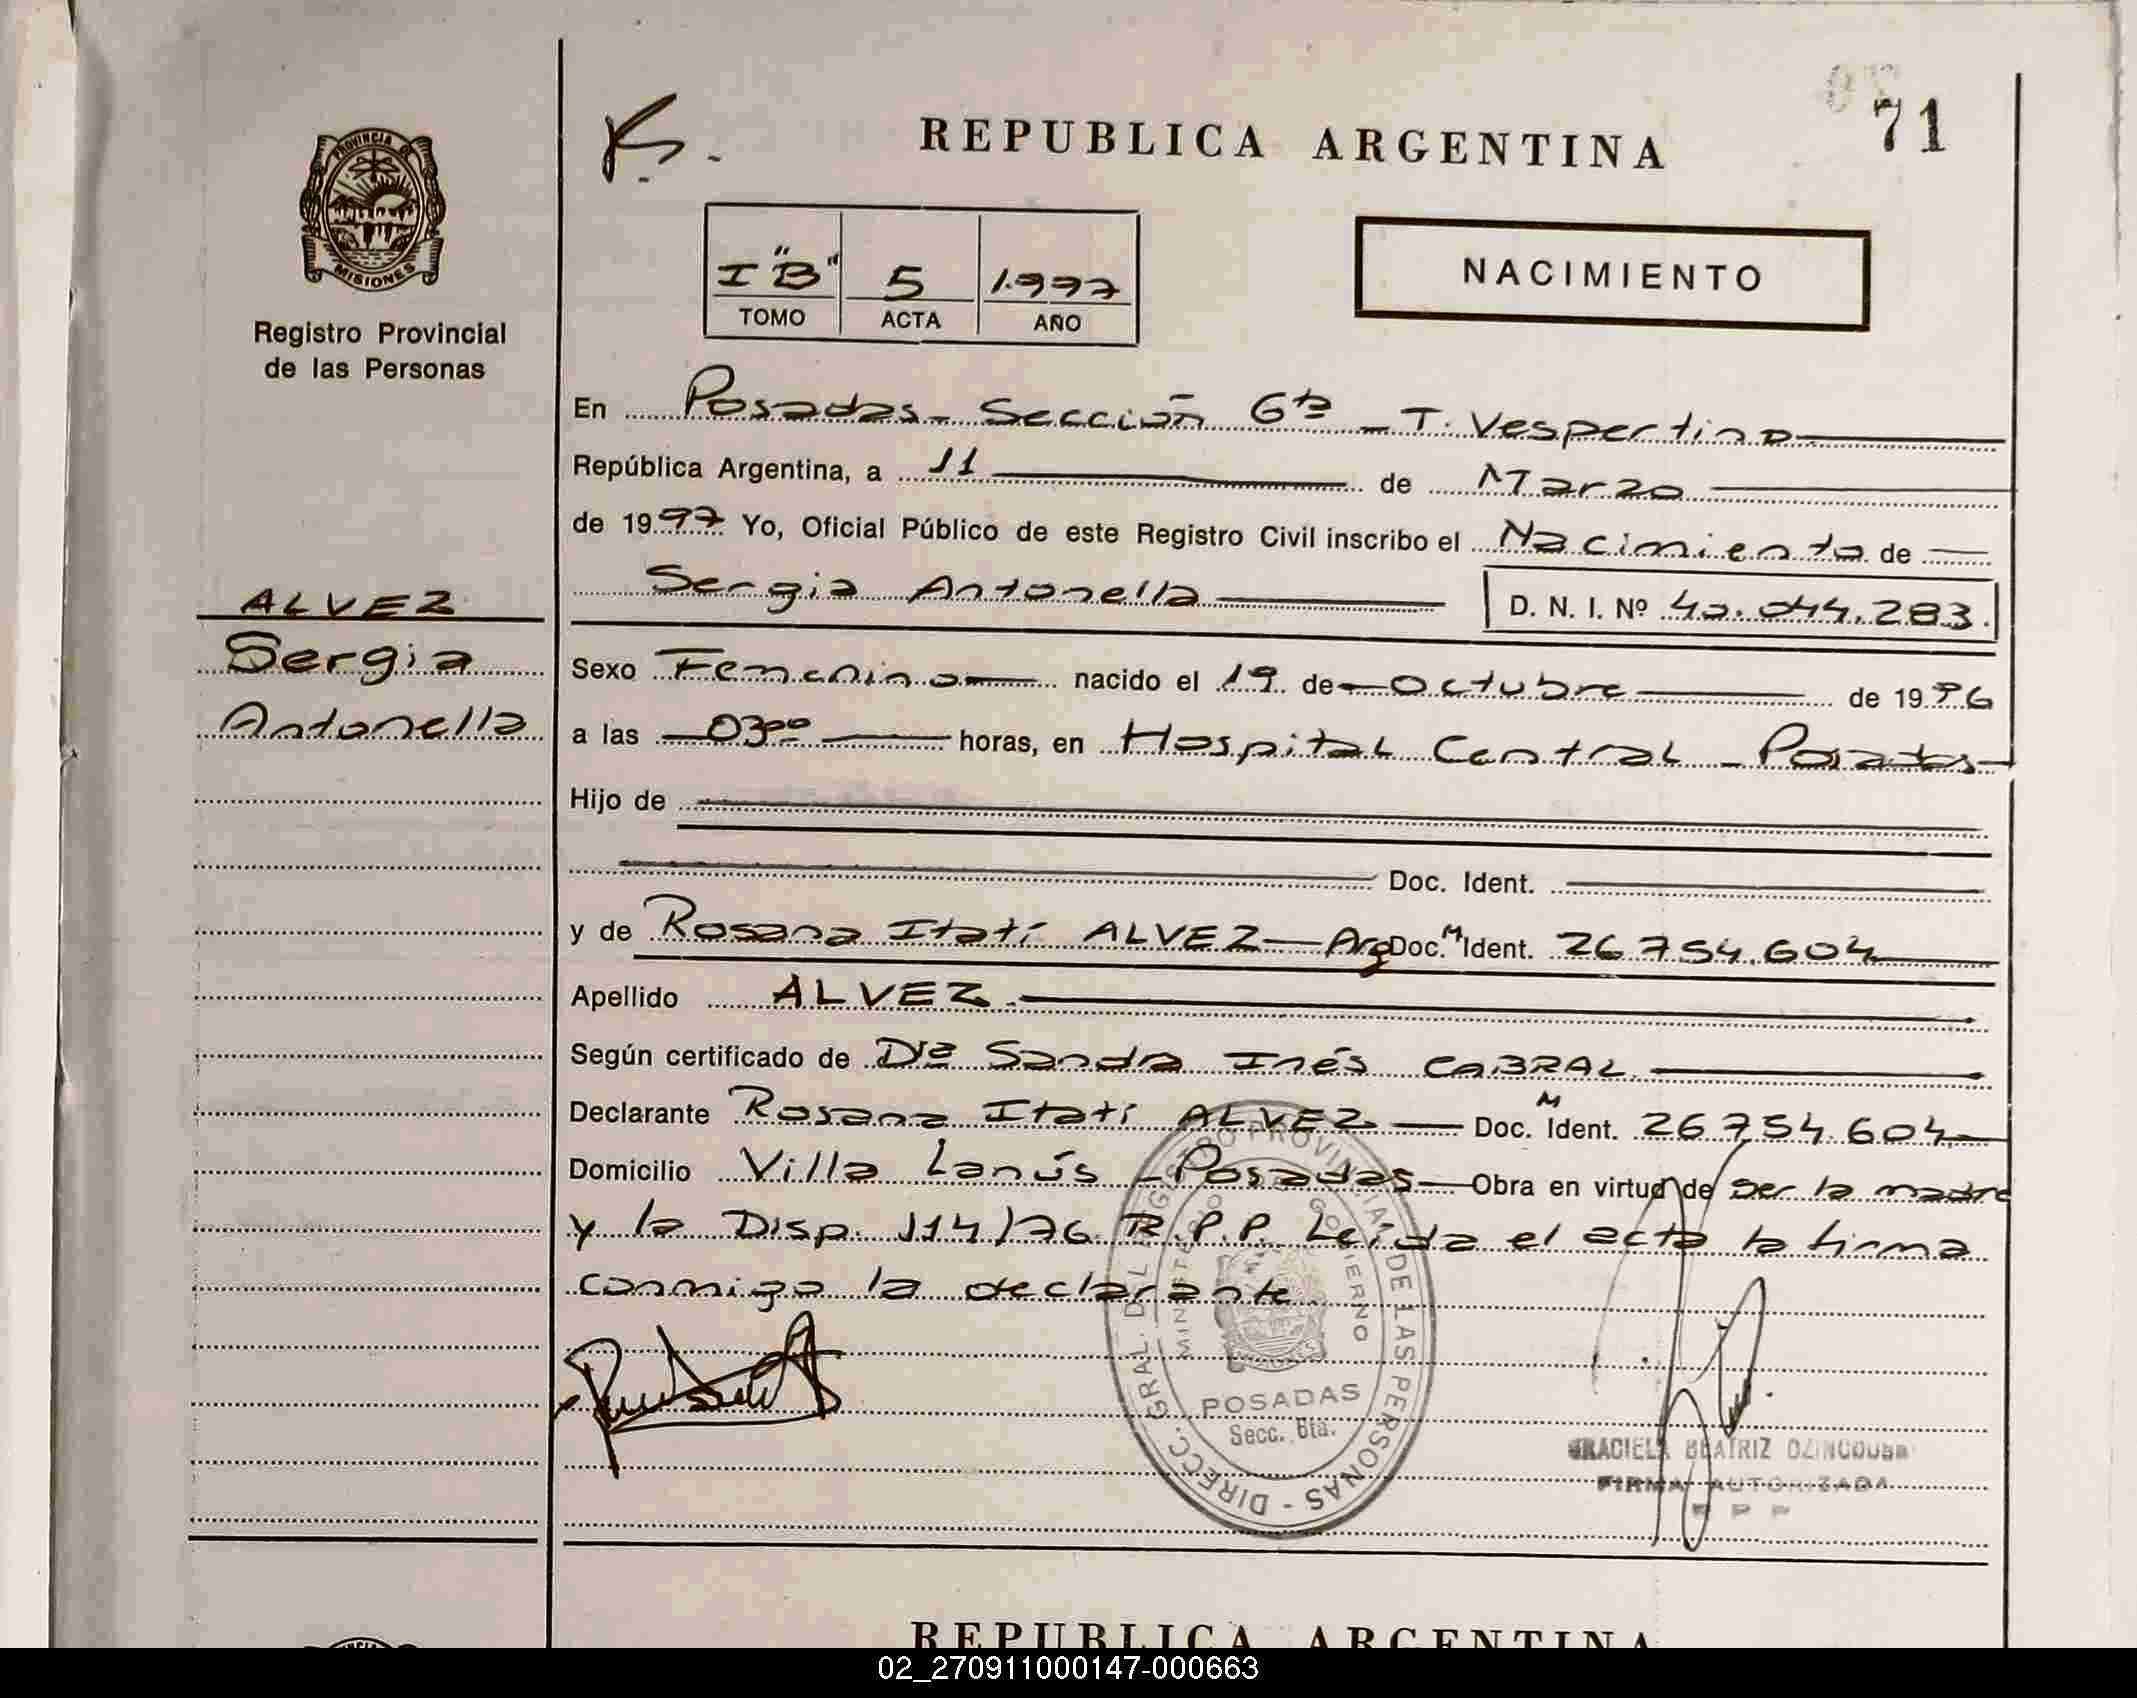 71
K.
REPUBLICA ARGENTINA
PROVINCIA DE
MISIONES
Registro Provincial
de las Personas
I "B" 5 1.997
TOMO ACTA AÑO
NACIMIENTO
En Posadas - Sección 6ta - T. Vespertino
República Argentina, a 11 de Marzo
de 1997 Yo, Oficial Público de este Registro Civil inscribo el Nacimiento de
Sergia Antonella D. N. I. Nº 40.044.283.
ALVEZ
Sergia
Antonella
Sexo Femenino nacido el 19 de Octubre de 1996
a las 03⁰⁰ horas, en Hospital Central - Posadas
Hijo de
Doc. Ident.
y de Rosana Itatí ALVEZ - Arg Doc. M Ident. 26.754.604
Apellido ALVEZ.
Según certificado de Dra Sandra Inés CABRAL
Declarante Rosana Itatí ALVEZ Doc. M Ident. 26.754.604
Domicilio Villa Lanús - Posadas Obra en virtud de ser la madre
y la Disp. 114/76 R.P.P. Leída el acta la firma
conmigo la declarante
DIRECC. GRAL. DEL REGISTRO PROVINCIAL DE LAS PERSONAS
MINISTERIO DE GOBIERNO
POSADAS
Secc. 6ta.
GRACIELA BEATRIZ
FIRMA AUTORIZADA
R P P
REPUBLICA ARGENTINA
02_270911000147-000663